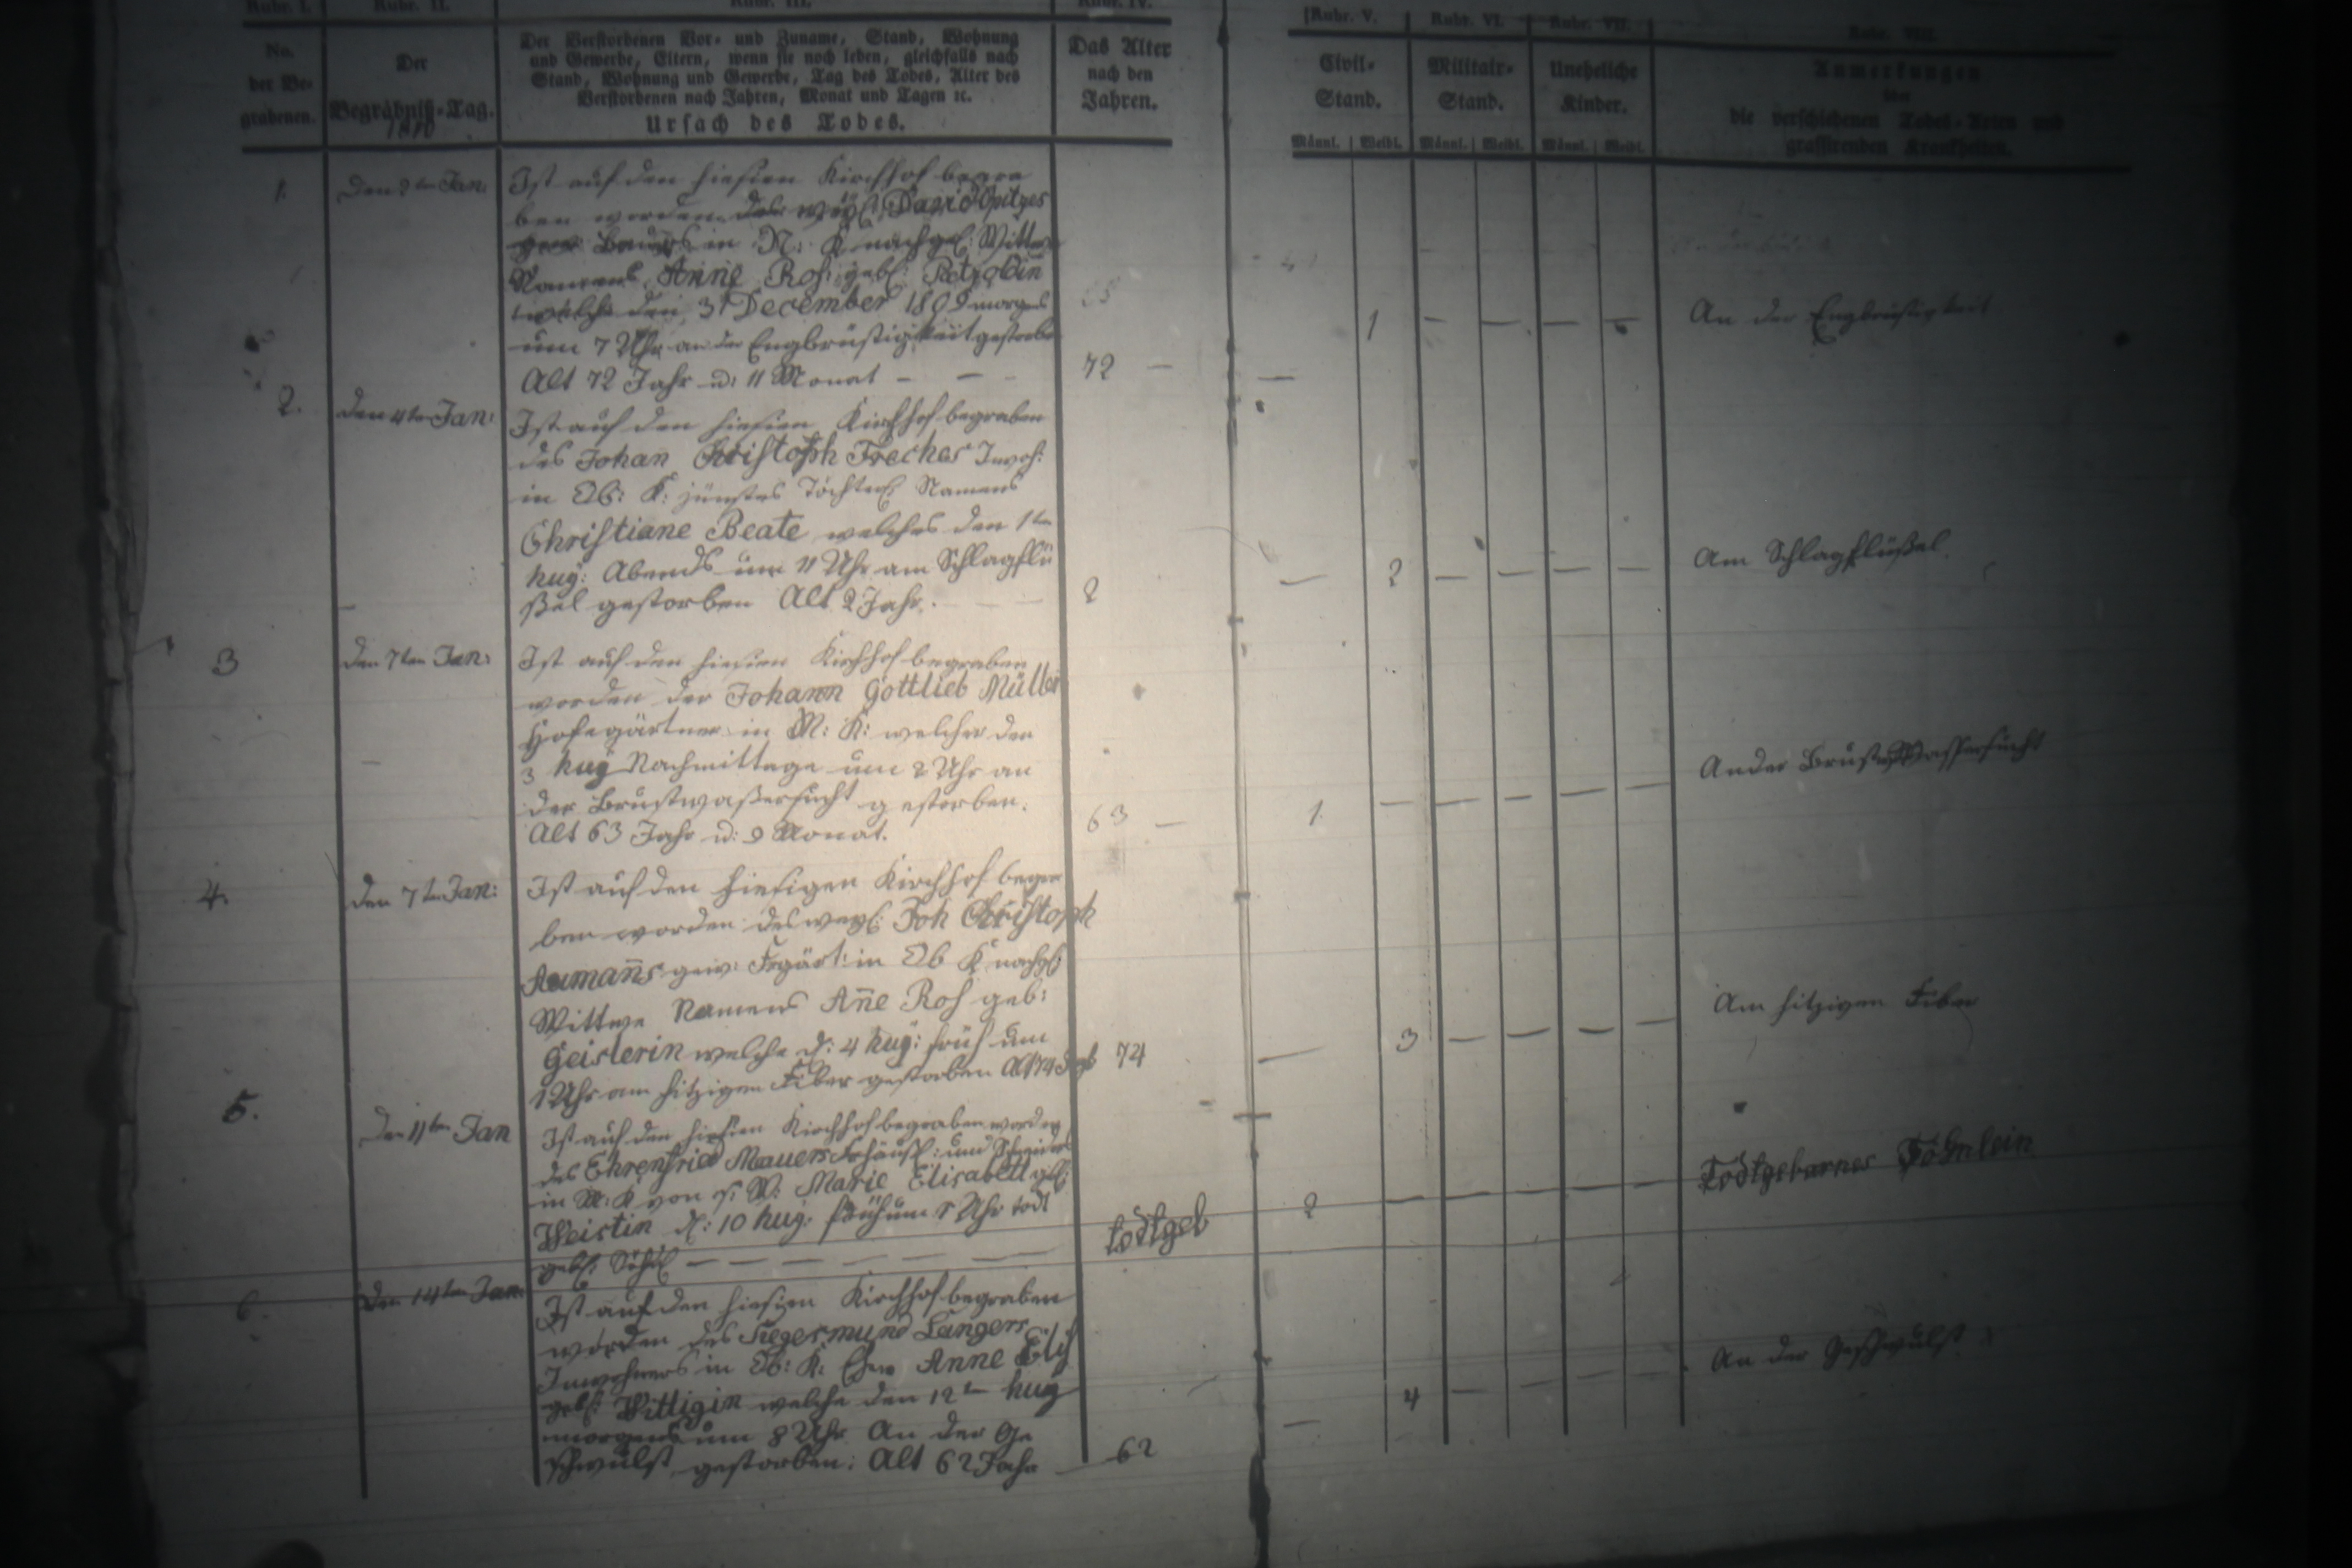 Rubr. I. Rubr. II. Rubr. III. Rubr. IV. Rubr. V. Rubr. VI. Rubr. VII. Rubr. VIII.
No.
der Be-
grabenen.
Der
Begräbniß-Tag.
1810
Der Verstorbenen Vor- und Zuname, Stand, Wohnung
und Gewerbe, Eltern, wenn sie noch leben, gleichfalls nach
Stand, Wohnung und Gewerbe, Tag des Todes, Alter des
Verstorbenen nach Jahren, Monat und Tagen ꝛc.
Ursach des Todes.
Das Alter
nach den
Jahren.
Civil-
Stand.
Militair-
Stand.
Uneheliche
Kinder.
Anmerkungen
über
die verschiedenen Todes-Arten und
grassirenden Krankheiten.
Männl. Weibl. Männl. Weibl. Männl. Weibl.
1. Den 2ten Jan:
Ist auf den hiesien Kirchhof begra
ben worden des weyl: David Opitzes
Bauers in N: K nachgel: Wittwe
Namens Anne Ros: geb: Petzoldin
welche den 31 December 1809 morgens
um 7 Uhr an der Engbrüstigkeit gestorben
Alt 72 Jahr u: 11 Monat – –
72 — — 1 — — — —
An der Engbrüstigkeit
2. den 4ten Jan:
Ist auf den hiesien Kirchhof begraben
des Johan Christoph Freches Inwoh:
in Ob: K: jüngstes Töchterl Namens
Christiane Beate welches den 1ten
huj: Abends um 11 Uhr am Schlagflü
ßel gestorben Alt 2 Jahr.
2 — 2 — — — —
Am Schlagflüßel
3 den 7ten Jan:
Ist auf den hiesien Kirchhof begraben
worden der Johann Gottlieb Müller
Hofegärtner in M: K: welcher den
3 huj Nachmittage um 2 Uhr an
der Brustwaßersucht gestorben.
Alt 63 Jahr u: 9 Monat.
63 — 1. — — — — —
An der Brustwassersucht
4. den 7ten Jan:
Ist auf den hiesigen Kirchhof begra
ben worden des weyl: Joh Christoph
Aumans gew: Frgärt: in Ob K nachgl:
Wittwe Namens Ane Ros geb:
Geislerin welche d: 4 huj: früh um
1 Uhr am hitzigen Fiber gestorben Alt 74 Jahr
74 — 3 — — — —
Am hitzigen Fiber
5. Den 11ten Jan
Ist auf den hiesien Kirchhof begraben worden
des Ehrenfried Mauers Frhäusl: und Schneiders
in M: K von s: W: Marie Elisabett geb:
Weistin d: 10 huj: früh um 5 Uhr todt
geb: Söhnl — — — — —
todtgeb 2 — — — — —
Todtgebornes Söhnlein
6. den 14ten Jan:
Ist auf den hiesigen Kirchhof begraben
worden des Siegesmund Langers
Inwohners in Ob: K: Ehew Anne Elis
geb: Wittigin welche den 12ten huj
morgens um 8 Uhr An der Ge
schwulst gestorben: Alt 62 Jahr
62 — 4 — — — —
An der Geschwulst